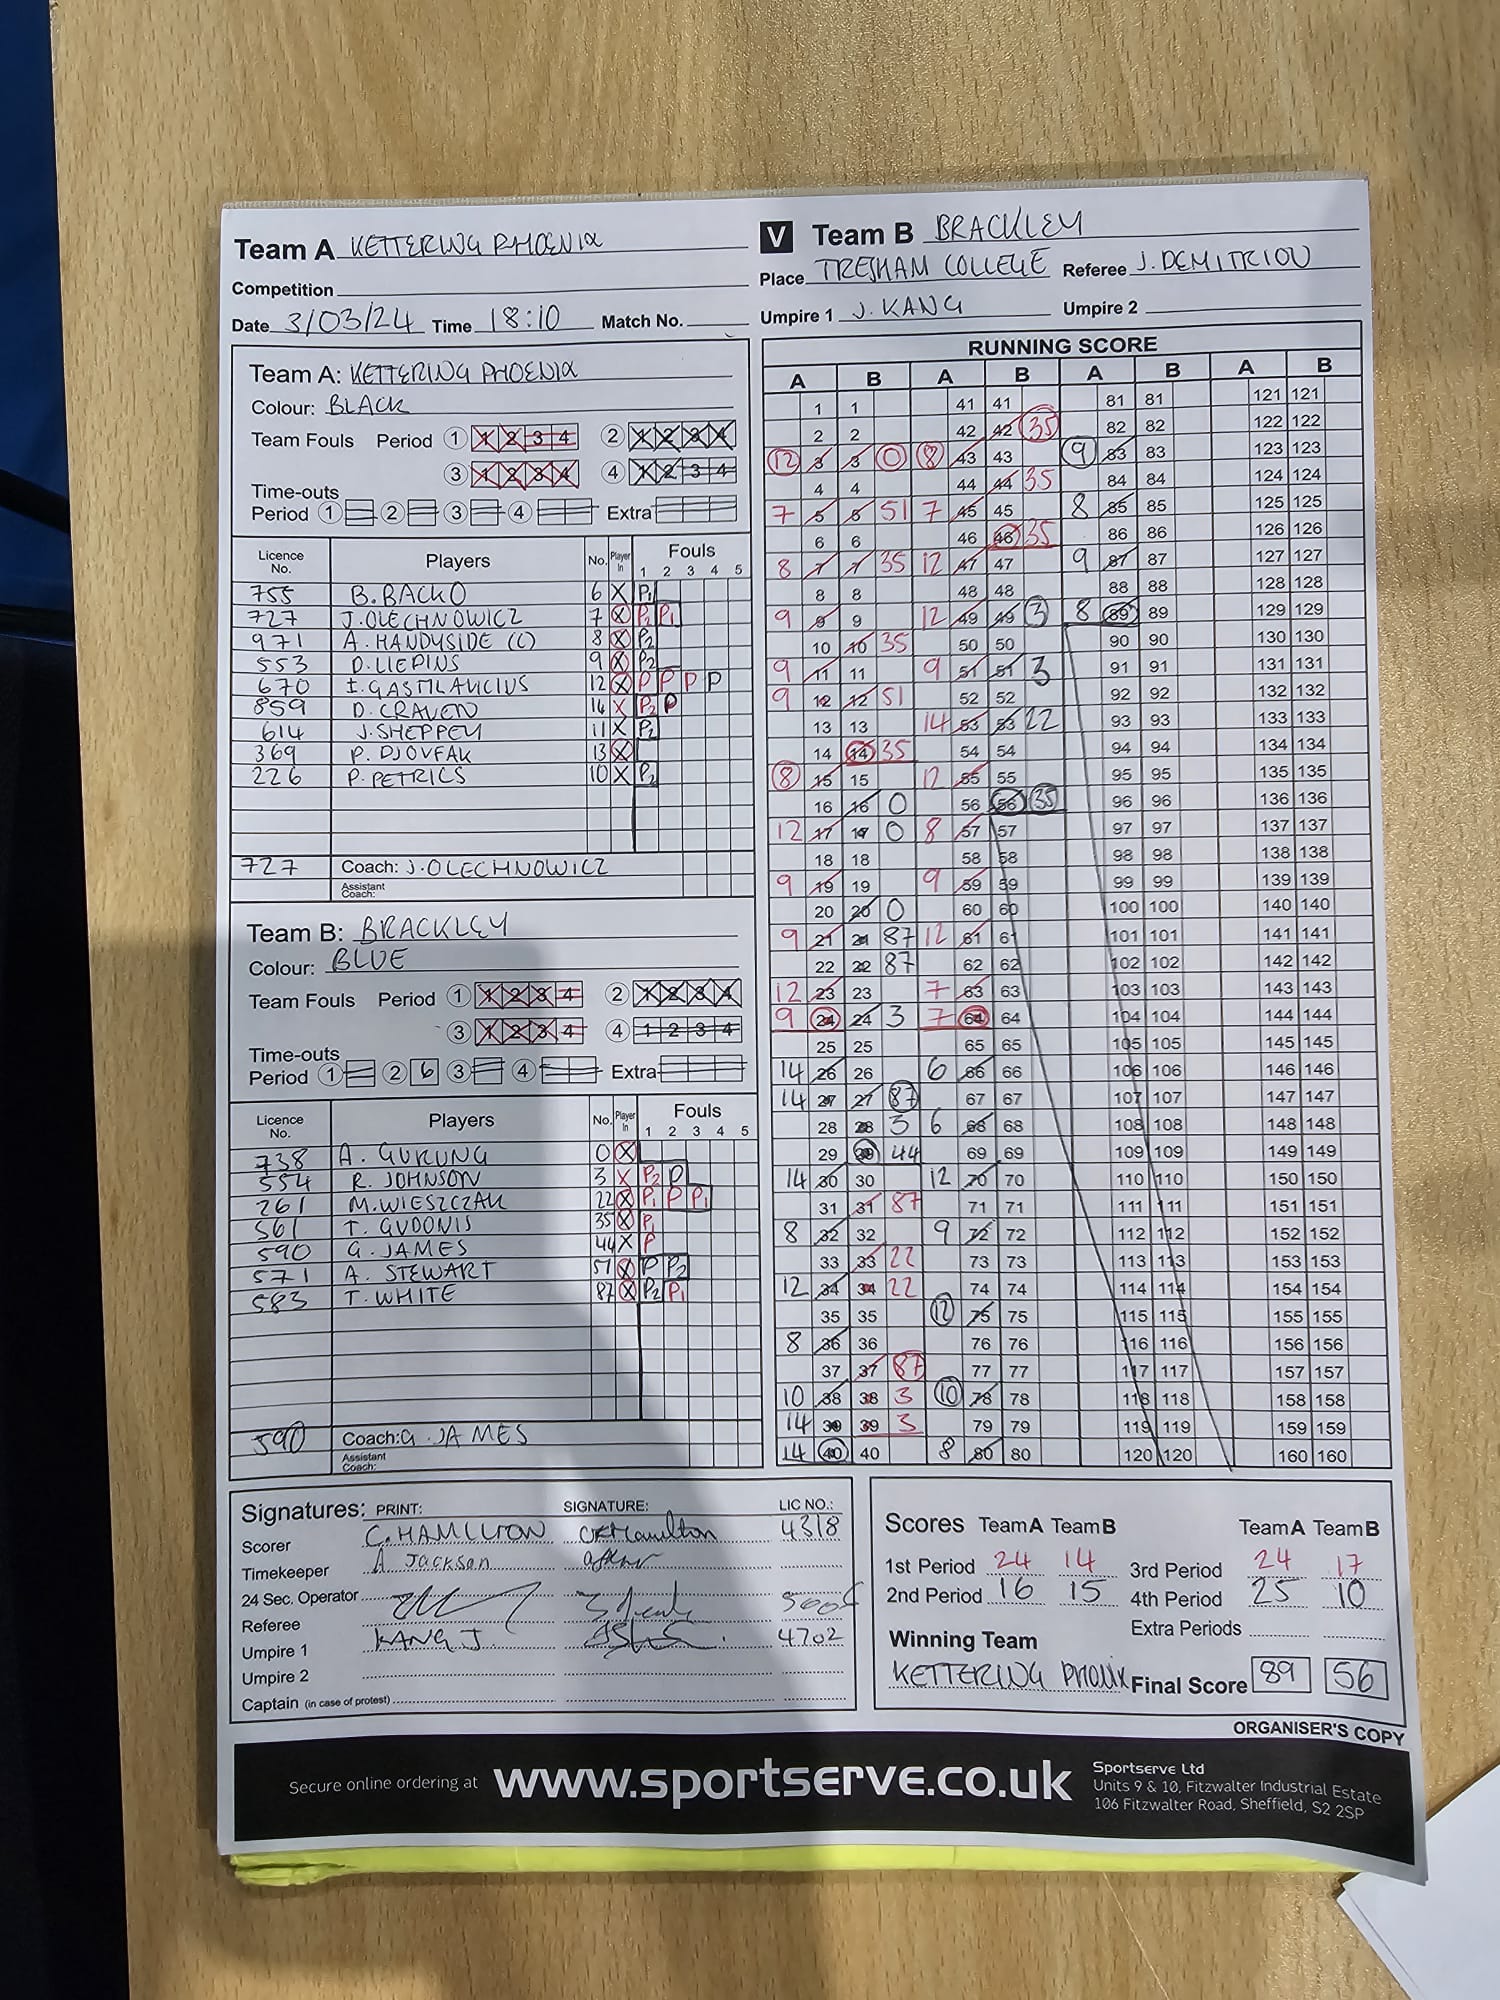 Team A KETTERING PHOENIX
V Team B BRACKLEY
Competition
Place TRESHAM COLLEGE Referee J. DEMITRIOU
Date 3/03/24 Time 18:10 Match No.
Umpire 1 J. KANG Umpire 2
Team A: KETTERING PHOENIX
Colour: BLACK
Team Fouls Period 1 1 2 3 4 2 1 2 3 4
3 1 2 3 4 4 1 2 3 4
Time-outs
Period 1 2 3 4 Extra
Licence No. Players No. Player In Fouls
1 2 3 4 5
755 B. BACKO 6 X P1
727 J. OLECHNOWICZ 7 X P2 P1
971 A. HANDYSIDE (C) 8 X P2
553 D. LIEPINS 9 X P2
670 I. GASTILAVICIUS 12 X P P P P
859 D. CRAVEN 14 X P2 P
614 J. SHEPPEY 11 X P2
369 P. DJOVFAK 13 X
226 P. PETRICS 10 X P2
727 Coach: J. OLECHNOWICZ
Assistant Coach:
Team B: BRACKLEY
Colour: BLUE
Team Fouls Period 1 1 2 3 4 2 1 2 3 4
3 1 2 3 4 4 1 2 3 4
Time-outs
Period 1 2 6 3 4 Extra
Licence No. Players No. Player In Fouls
1 2 3 4 5
738 A. GURUNG 0 X
554 R. JOHNSON 3 X P2 P
261 M. WIESZCZAK 22 X P1 P P1
561 T. GUDONIS 35 X P1
590 G. JAMES 44 X P
571 A. STEWART 51 X P P2
583 T. WHITE 87 X P2 P1
590 Coach: G. JAMES
Assistant Coach:
RUNNING SCORE
A B A B A B A B
1 1 41 41 81 81 121 121
2 2 42 42 35 82 82 122 122
12 3 3 0 8 43 43 9 83 83 123 123
4 4 44 44 35 84 84 124 124
7 5 5 51 7 45 45 8 85 85 125 125
6 6 46 46 35 86 86 126 126
8 7 7 35 12 47 47 9 87 87 127 127
8 8 48 48 88 88 128 128
9 9 9 12 49 49 3 8 89 89 129 129
10 10 35 50 50 90 90 130 130
9 11 11 9 51 51 3 91 91 131 131
9 12 12 51 52 52 92 92 132 132
13 13 14 53 53 22 93 93 133 133
14 14 35 54 54 94 94 134 134
8 15 15 12 55 55 95 95 135 135
16 16 0 56 56 35 96 96 136 136
12 17 17 0 8 57 57 97 97 137 137
18 18 58 58 98 98 138 138
9 19 19 9 59 59 99 99 139 139
20 20 0 60 60 100 100 140 140
9 21 21 87 12 61 61 101 101 141 141
22 22 87 62 62 102 102 142 142
12 23 23 7 63 63 103 103 143 143
9 24 24 3 7 64 64 104 104 144 144
25 25 65 65 105 105 145 145
14 26 26 6 66 66 106 106 146 146
14 27 27 87 67 67 107 107 147 147
28 28 3 6 68 68 108 108 148 148
29 29 44 69 69 109 109 149 149
14 30 30 12 70 70 110 110 150 150
31 31 87 71 71 111 111 151 151
8 32 32 9 72 72 112 112 152 152
33 33 22 73 73 113 113 153 153
12 34 34 22 74 74 114 114 154 154
35 35 12 75 75 115 115 155 155
8 36 36 76 76 116 116 156 156
37 37 87 77 77 117 117 157 157
10 38 38 3 10 78 78 118 118 158 158
14 39 39 3 79 79 119 119 159 159
14 40 40 8 80 80 120 120 160 160
Signatures: PRINT: SIGNATURE: LIC NO.:
Scorer C. HAMILTON CKHamilton 4318
Timekeeper A. Jackson
24 Sec. Operator
Referee
Umpire 1 KANG J. 4702
Umpire 2
Captain (in case of protest)
Scores Team A Team B Team A Team B
1st Period 24 14 3rd Period 24 17
2nd Period 16 15 4th Period 25 10
Extra Periods
Winning Team
KETTERING PHONIX Final Score 89 56
ORGANISER'S COPY
Secure online ordering at www.sportserve.co.uk
Sportserve Ltd
Units 9 & 10, Fitzwalter Industrial Estate
106 Fitzwalter Road, Sheffield, S2 2SP